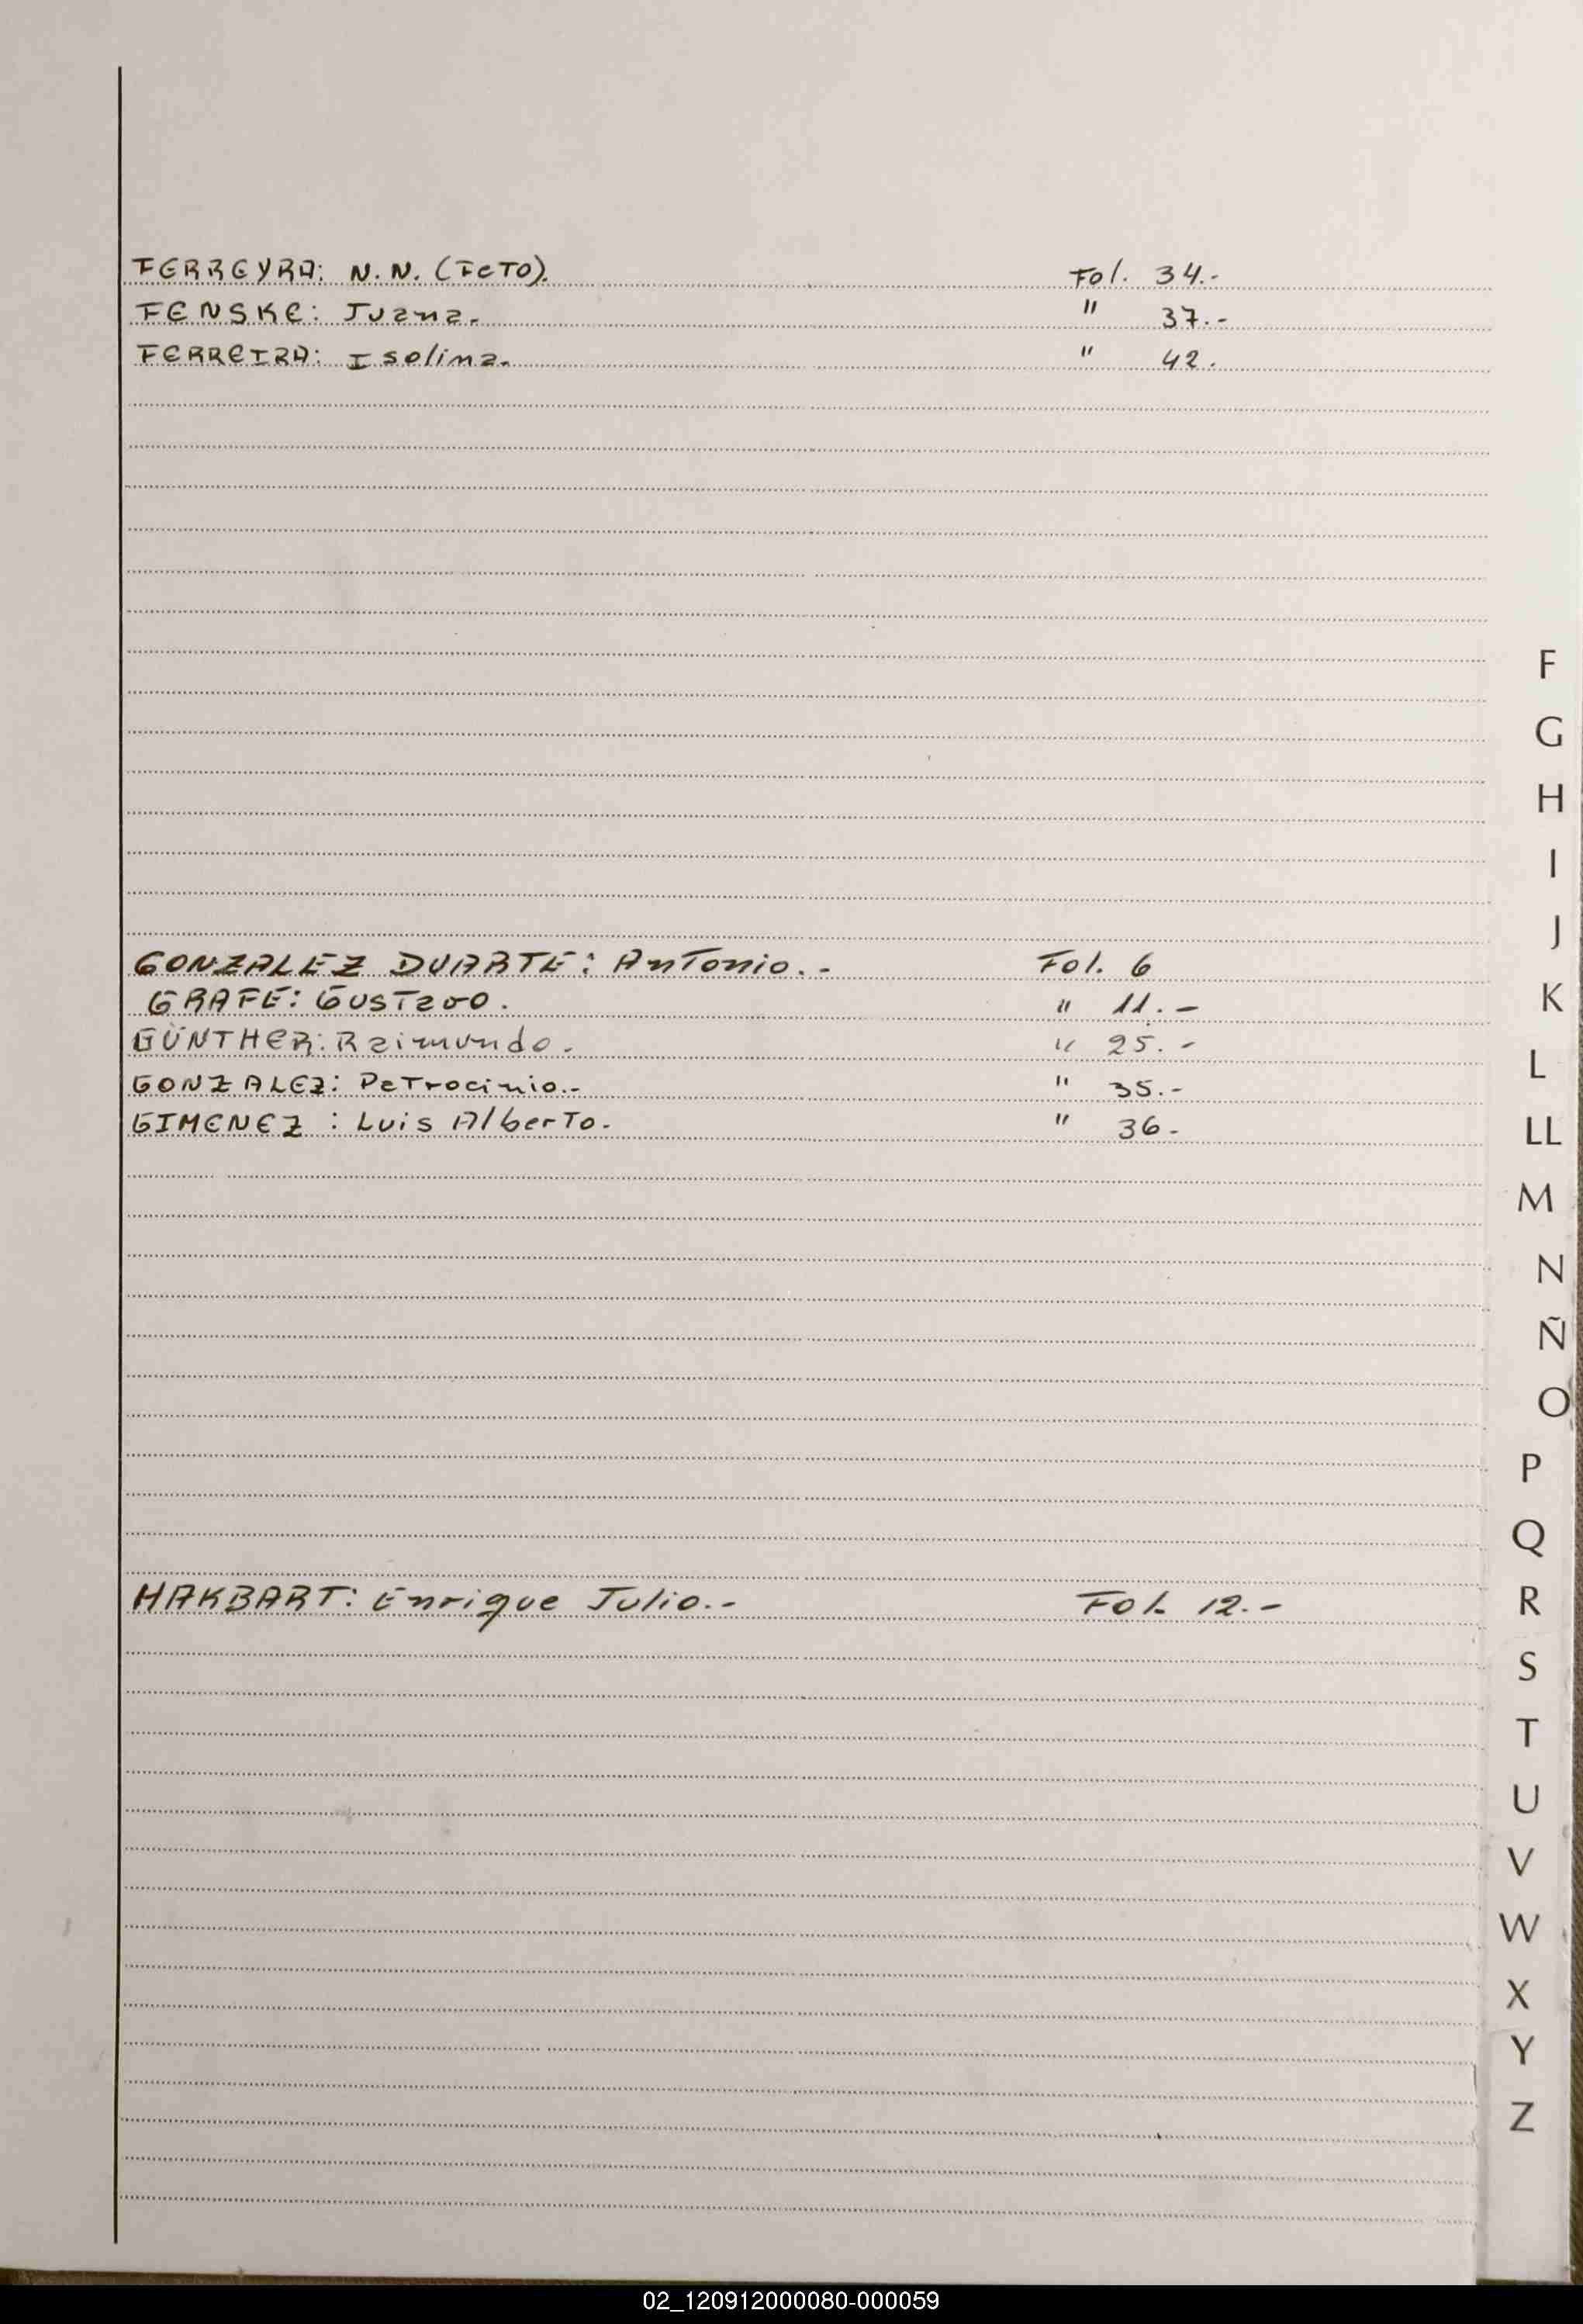 FERREYRA: N.N. (FETO). Fol. 34.-
FENSKE: Juana.- " 37.-
FERREIRA: Isolina. " 42.
GONZALEZ DUARTE: Antonio.- Fol. 6
GRAFE: Gustavo. " 11.-
GÜNTHER: Raimundo.- " 25.-
GONZALEZ: Petrocinio.- " 35.-
GIMENEZ: Luis Alberto. " 36-
HAKBART: Enrique Julio.- Fol. 12.-
F
G
H
I
J
K
L
LL
M
N
Ñ
O
P
Q
R
S
T
U
V
W
X
Y
Z
02_120912000080-000059